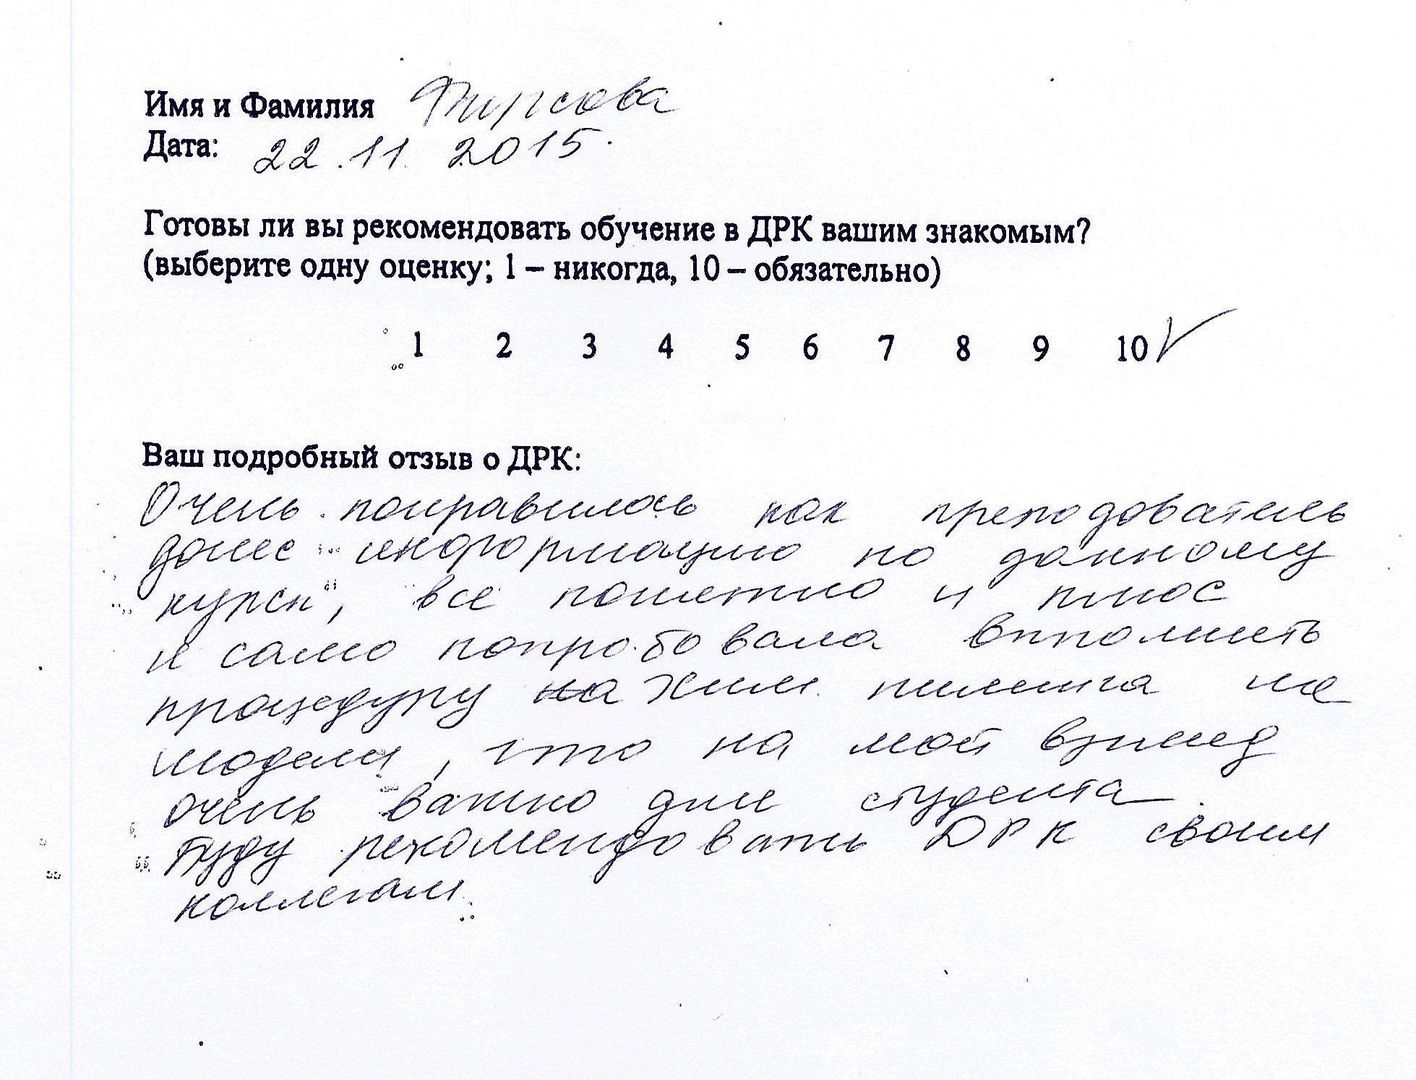 Имя и Фамилия Фирсова
Дата: 22.11.2015.
Готовы ли вы рекомендовать обучение в ДРК вашим знакомым?
(выберите одну оценку; 1 – никогда, 10 – обязательно)
1 2 3 4 5 6 7 8 9 10
Ваш подробный отзыв о ДРК:
Очень понравилось как преподователь
донес информацию по данному
курсу, все понятно и плюс
я само попробовала выполнить
процедуру на хим. пилинга на
модели, что на мой взгляд
очень важно для студента.
Буду рекомендовать ДРК своим
коллегам.